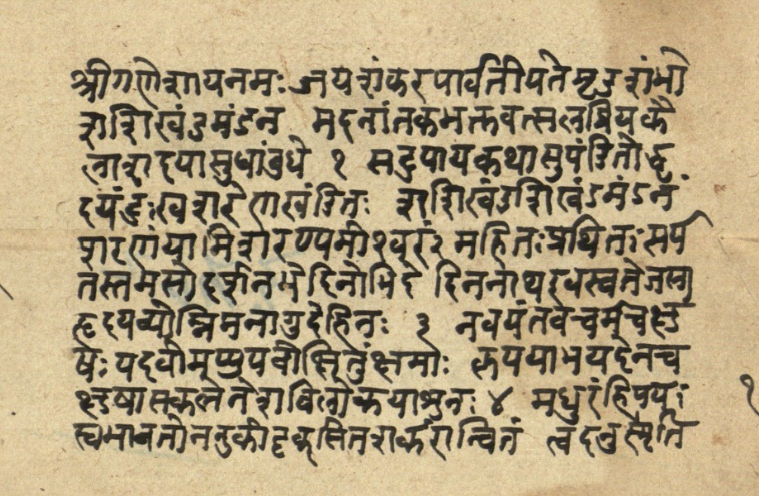 श्रीगणेशायनमः जयशंकरपार्वतीपतेमृडशंभो
शशिखंडमंडन मदनांतकभक्तवत्सलप्रियकै
लाशदयासुधांबुधे १ सदुपायकथासुपंडितोहृ
दयंदुःखशरेणखंडितः शशिखंडशिखंडमंडनं
शरणंयामिशरण्यमीश्वरं२ महितःप्रथितःसर्प
तस्तमसोदर्शनभेदिनोभिदे दिननाथइवस्वतेजसा
हृदयव्योम्निमनागुदेहिनः ३ नवयंतवचर्मचक्षु
षः पदवीमप्युपवीक्षितुंक्षमाः कृपयाभयदेनच
क्षुषासकलेनेशविलोकयाशुनः ४ मधुरंहिपयः
स्वभावतोननुकीदृक्सितशर्करान्वितं त्वदनुस्मृति
१